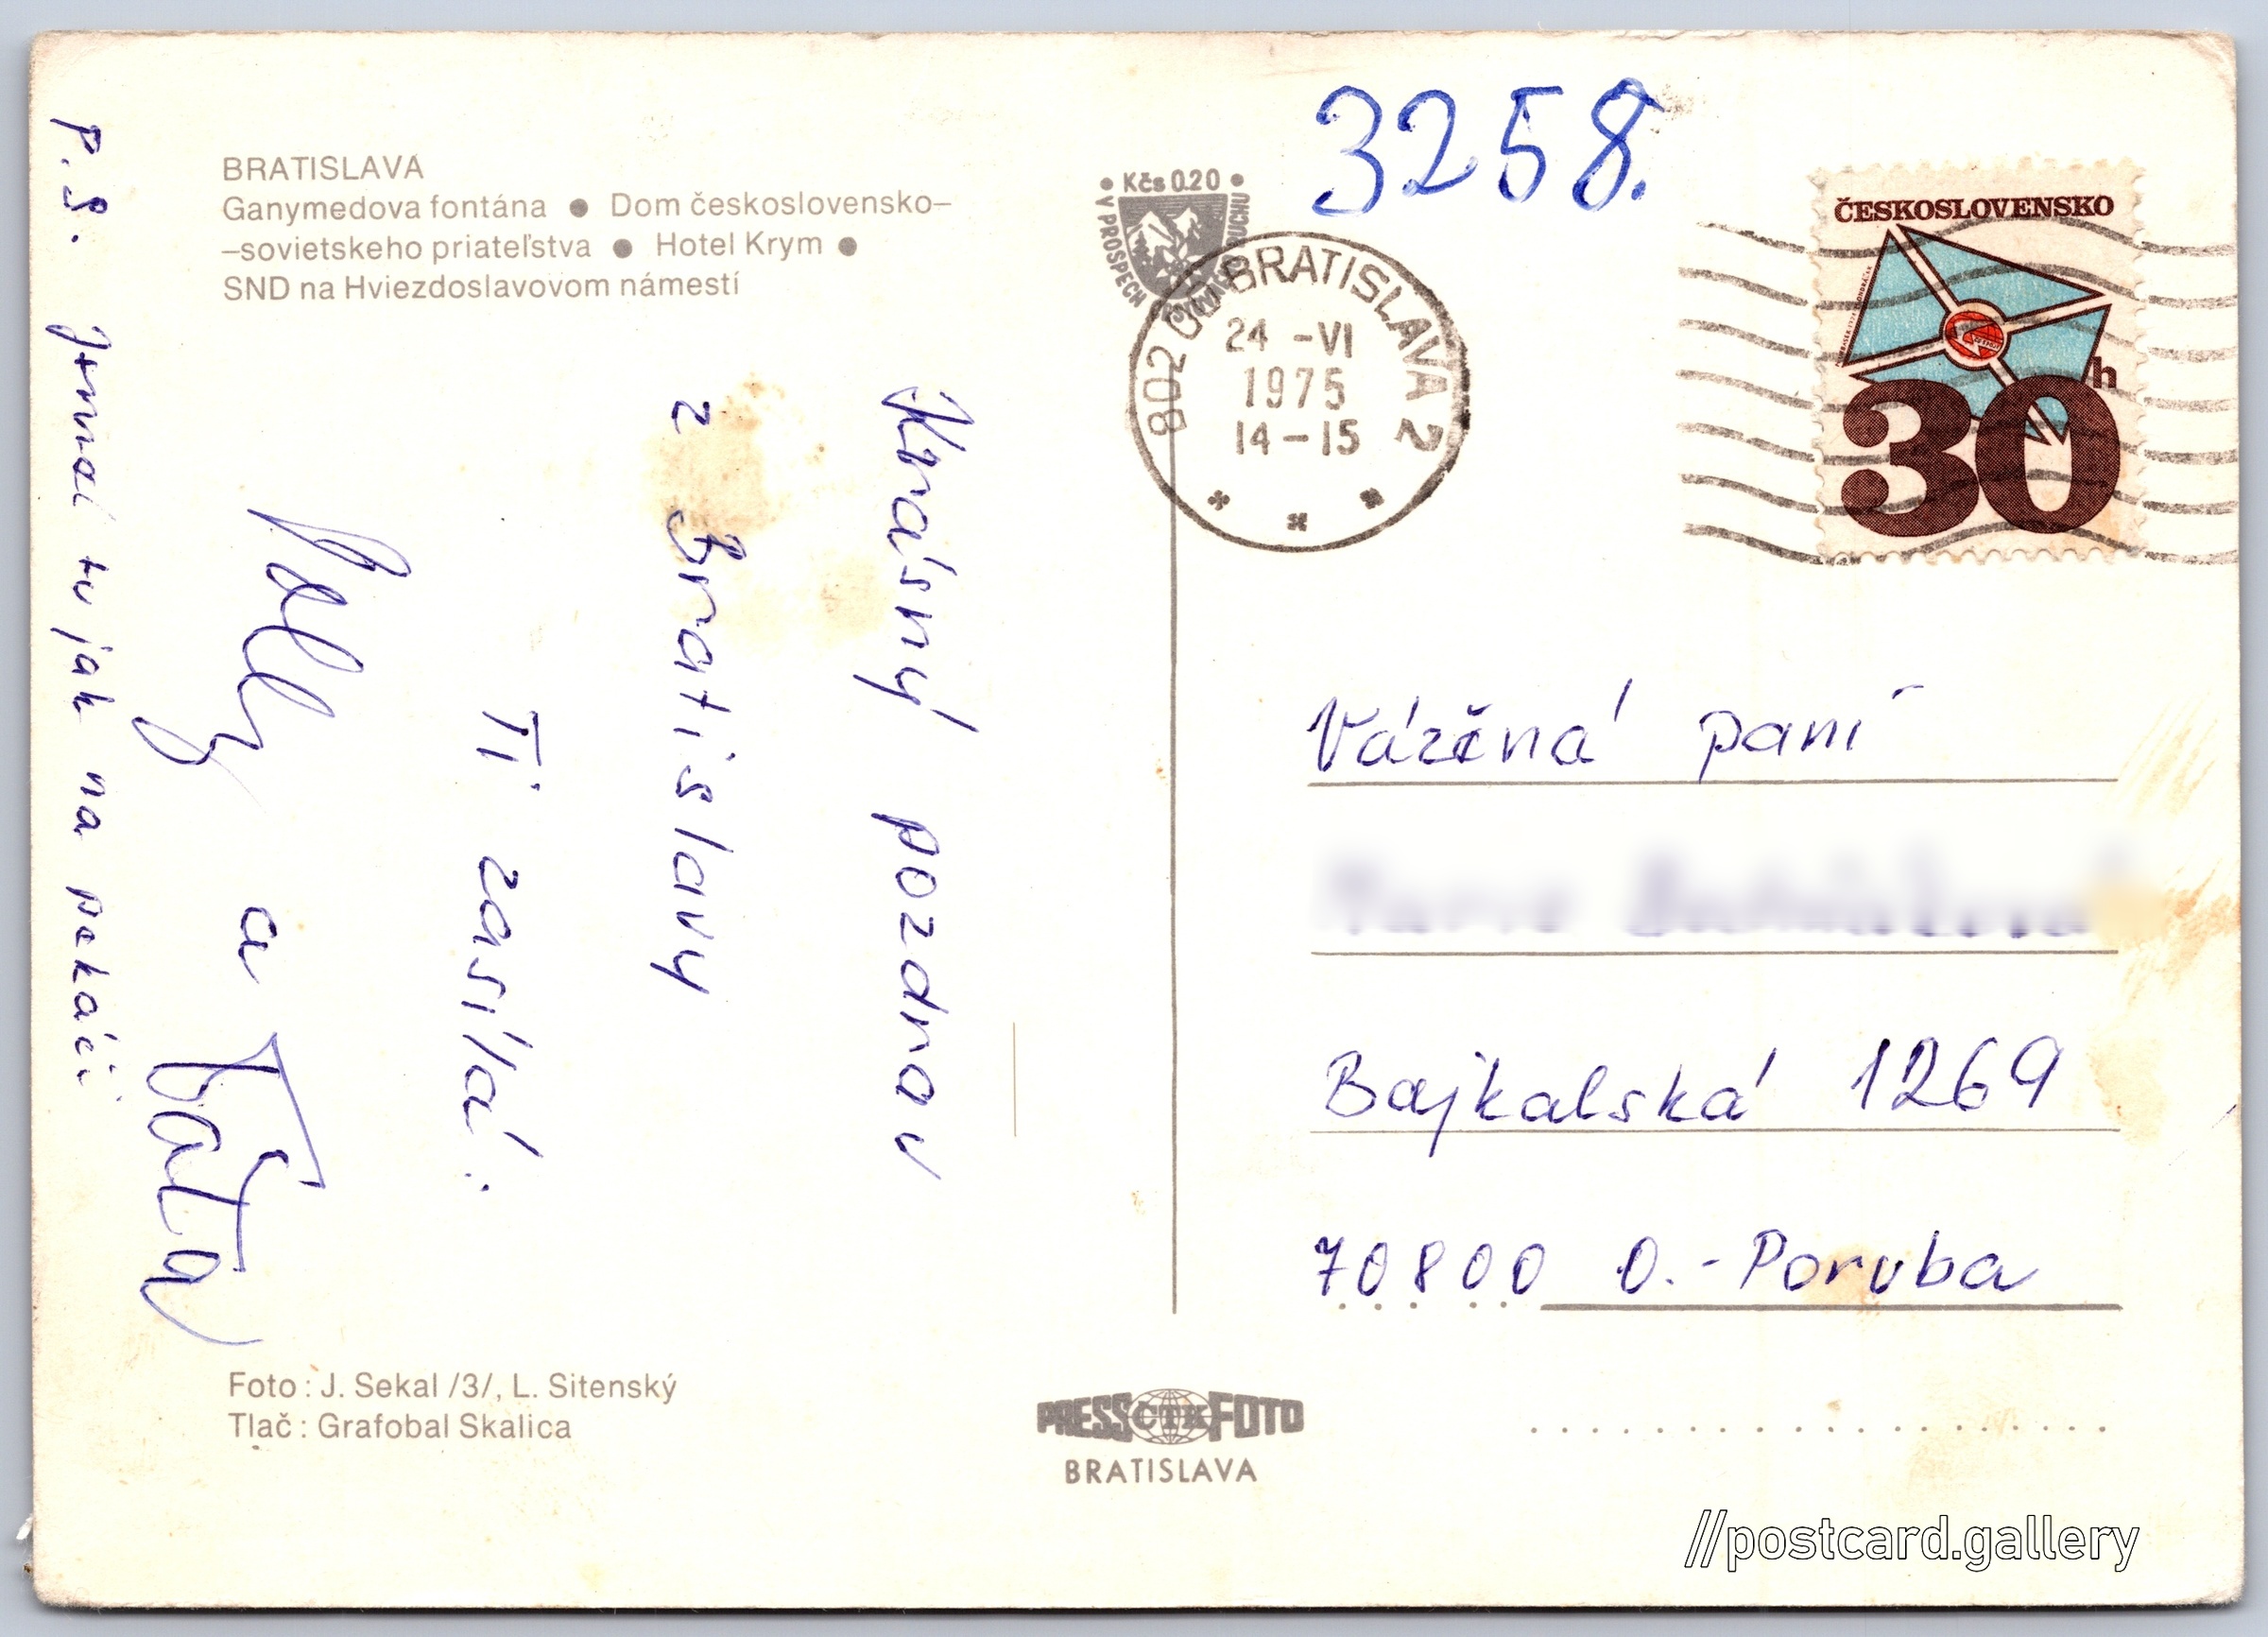 BRATISLAVA
Ganymedova fontána ● Dom československo–
–sovietskeho priateľstva ● Hotel Krym ●
SND na Hviezdoslavovom námestí
• Kčs 0.20 •
V PROSPECH
3258.
802 00 BRATISLAVA 2
24 -VI
1975
14-15
ČESKOSLOVENSKO
30h
Krásný pozdrav
z Bratislavy
Ti zasílá:
a Táta
P.S. tu jak na pekáči
Vážená paní
Bajkalská 1269
70800 O.-Poruba
Foto: J. Sekal /3/, L. Sitenský
Tlač: Grafobal Skalica
PRESS ČTK FOTO
BRATISLAVA
//postcard.gallery